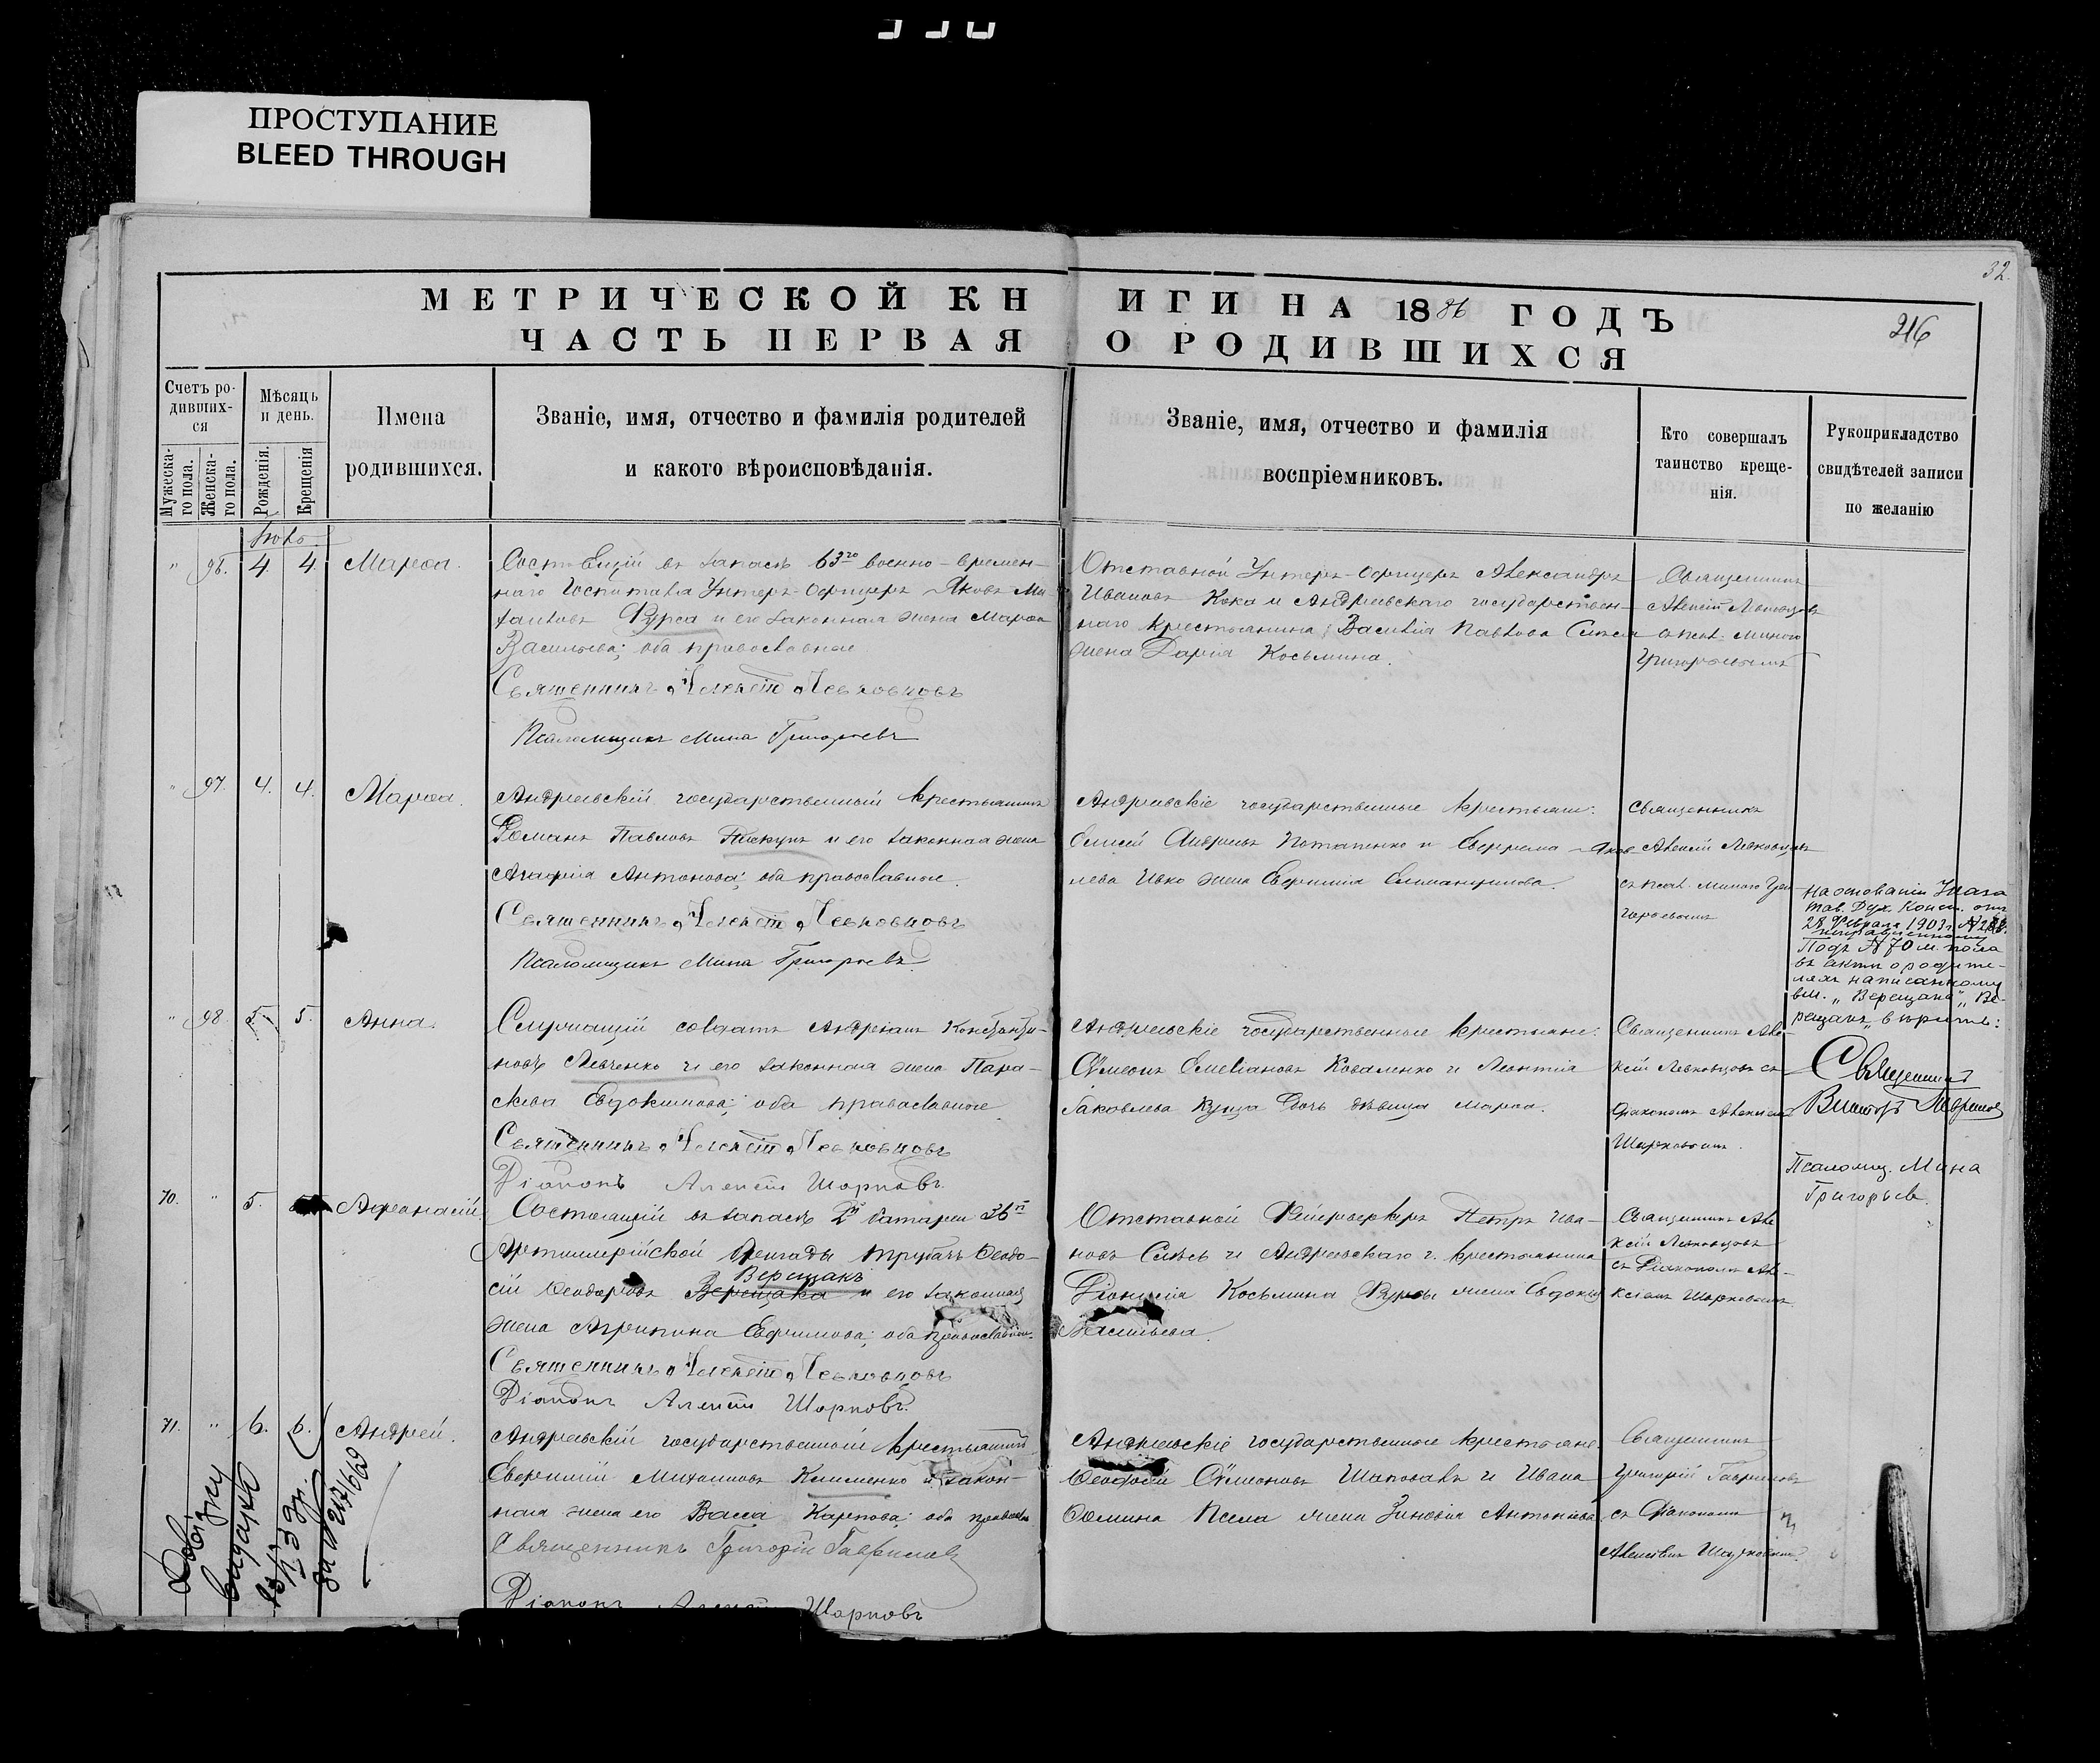 ПРОСТУПАНИЕ
BLEED THROUGH
32.
МЕТРИЧЕСКОЙ КНИГИ НА 1886 ГОДЪ
216
ЧАСТЬ ПЕРВАЯ О РОДИВШИХСЯ
Счетъ ро-
дивших-
ся
Мѣсяцъ
и день.
Имена
родившихся.
Званіе, имя, отчество и фамилія родителей
и какого вѣроисповѣданія.
Званіе, имя, отчество и фамилія
воспріемниковъ.
Кто совершалъ
таинство креще-
нія.
Рукоприкладство
свидѣтелей записи
по желанію
Мужеска-
го пола.
Женска-
го пола.
Рожденія.
Крещенія
" 96. 4. 4. Марѳа.
въ запасѣ 63го военно-времен-
наго Госпиталя Унтеръ-офицеръ Яковъ Ми-
хаиловъ Фурса и его законная жена Марѳа
Васильева; оба православные
Священникъ Алексій Левковцовъ
Псаломщикъ Мина Григорьевъ
Отставной Унтеръ-офицеръ Александръ
Ивановъ Кока и Андреевскаго государствен-
наго крестьянина Василія Павлова
жена Дарія Косьмина.
Священникъ
Алексій Левковцовъ
съ псал. Миною
Григорьевымъ
" 97. 4. 4. Марѳа.
Андреевскій государственный крестьянинъ
Романъ Павловъ Пискунъ и его законная жена
Агафія Антонова; оба православные.
Священникъ Алексій Левковцовъ
Псаломщикъ Мина Григорьевъ
Андреевскіе государственные крестьяне:
Елисей Андреевъ Потапенко и Яков-
лева Ивко жена Евфимія
Священникъ
Алексій Левковцовъ
съ псал. Миною Гри-
горьевымъ
На основаніи Указа
Тав. Дух. Конси. отъ
28 Февраля 1903 г.
Подъ № 70 м. пола
въ актѣ о родите-
ляхъ написанному
вм. "Верещака" "Ве-
рещакъ" вѣрить:
Священникъ
Викторъ
Псаломщ. Мина
Григорьевъ.
" 98. 5. 5. Анна.
Служащій солдатъ Андреянъ Константи-
новъ Левченко и его законная жена Пара-
скева Евдокимова; оба православные
Священникъ Алексій Левковцовъ
Діаконъ Алексій Шарковъ.
Андреевскіе государственные крестьяне:
Сѵмеонъ Емеліановъ Коваленко и Леонтія
Іаковлева Куща дочь дѣвица Марѳа.
Священникъ Але-
ксій Левковцовъ съ
діакономъ Алексіемъ
Шарковымъ.
70. " 5. Аѳанасій.
Состоящій въ запасѣ 2й батареи 36й
Артиллерійской бригады трубачъ Ѳеодо-
сій Ѳеодоровъ Верещака Верещакъ и его законная
жена Агрипина Евфимова; оба православные.
Священникъ Алексій Левковцовъ
Діаконъ Алексій Шарковъ.
Отставной Фейерверкеръ Петръ Ива-
новъ и Андреевскаго г. крестьянина
Діонисія Косьмина Фурсы жена Евдокія
Васильева.
Священникъ Але-
ксій Левковцовъ
съ Діакономъ Але-
ксіемъ Шарковымъ.
71. " 6. 6. Андрей.
Андреевскій государственный крестьянинъ
Евфимій Михаиловъ Клименко и закон-
ная жена его Васса Карпова; оба православн.
Священникъ Григорій Гавриловъ
Діаконъ Алексій Шарковъ
Андреевскіе государственные крестьяне.
Ѳеодосій Сѵмеоновъ Шаповалъ и Ивана
Ѳомина жена Зиновія Антоніева
Священникъ
Григорій Гавриловъ
съ Діакономъ
Алексіемъ Шарковымъ.
Довідку
видано